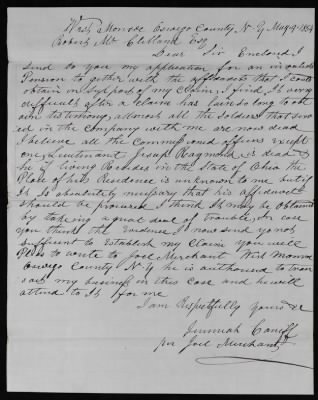 West Monroe Oswego County N.Y. May 9 1854
Robert Mc Clelland Esq
Dear Sir Enclosed I
send to you my application for an invalids
Pension to gether with the affidavits that I could
obtain in Support of my Claim, I find It very
difficult after a claim has lain so long to ob
ain testimony, allmost all the Soldiers that serv
ed in the Company with me are now dead
I believe all the Commissioned officers except
one Lieutenant Joseph Raymond is dead
he if living resides in the State of Ohio the
Place of his Residence is unknown to me but if
It is absolutely nessisary that his affidavit
should be procured I think It may be obtained
by taking a great deal of trouble, In case
you think the Evidence I now send you not
sufficent to Establish my Claim you will
Please to write to Joel Merchant West Monroe
Oswego County N.Y he is authorised to tran
sact my business in this case and he will
attend to It for me
I am Respectfully yours &c
Jeremiah
per Joel Merchant